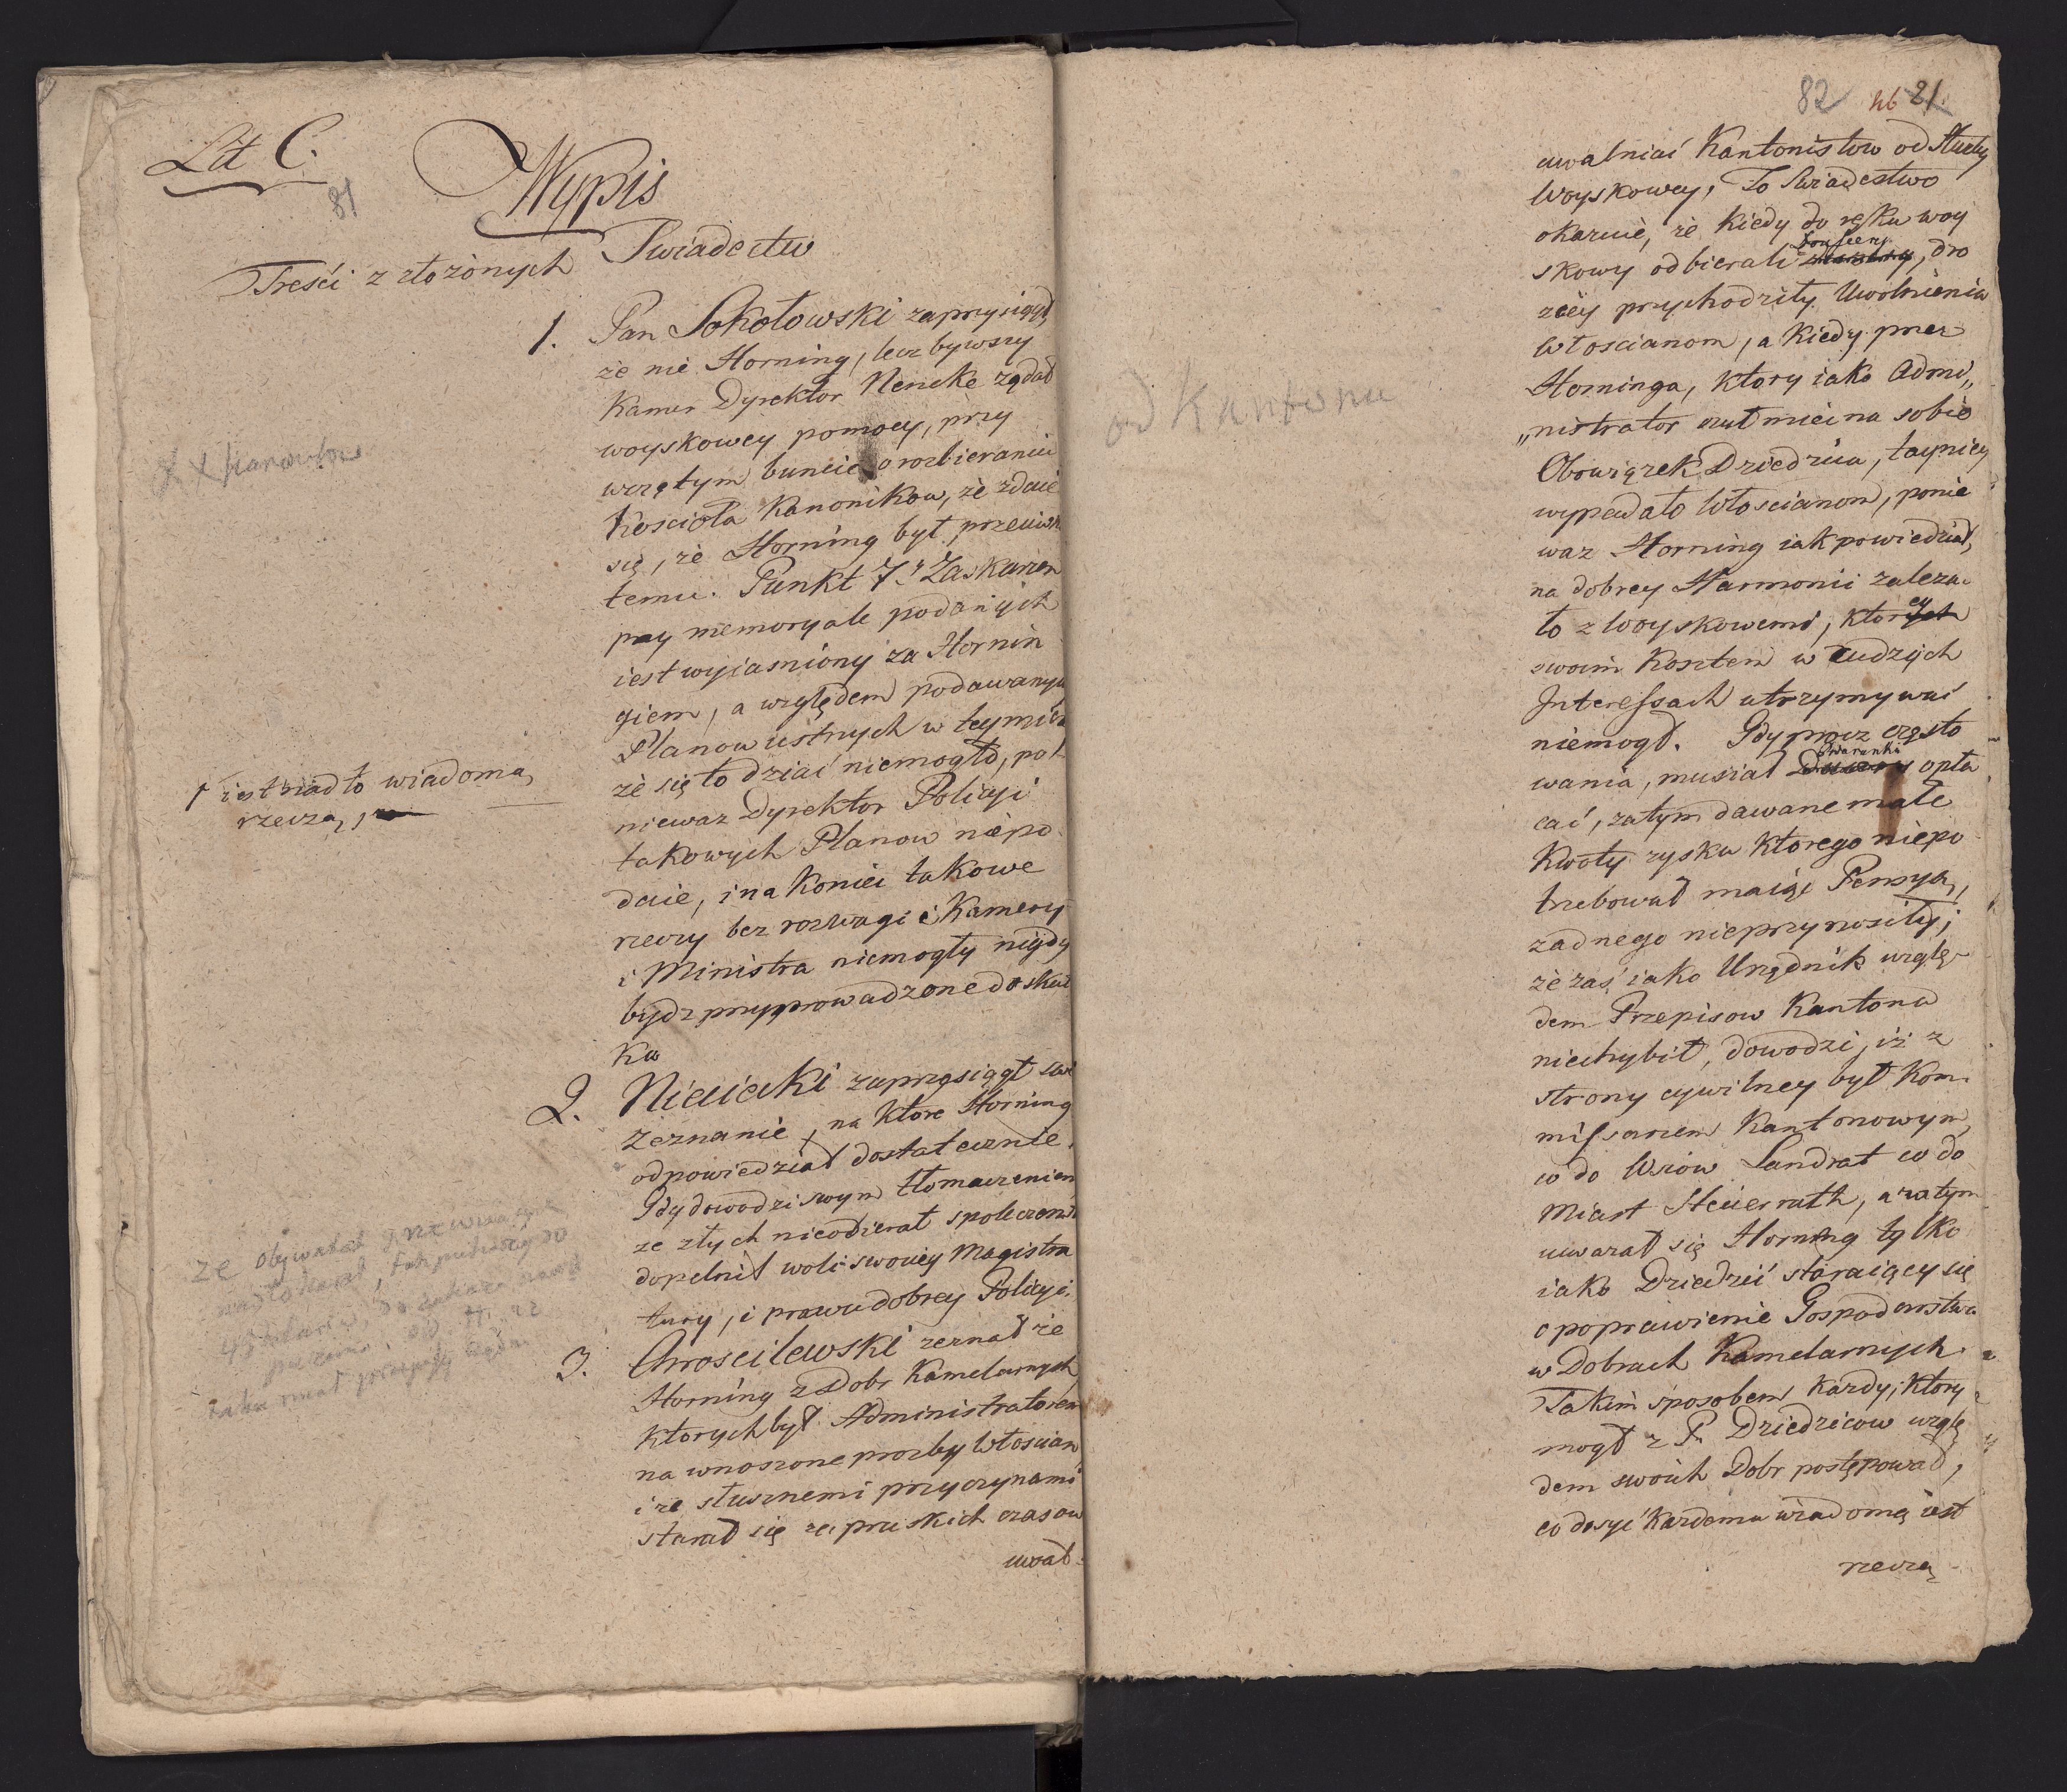 Lit C.
81
Wypis
Treści z złożonych Swiadectw
1. Pan Sokołowski zaprzysiągł,
że nie Horning, lecz bywszy
Kamer Dyrektor Nencke żądał
woyskowey pomocy, przy
wszętym buncie o rozbieraniu
Kościoła Kanonikow, że zdaie
się, że Horning był przeciw
temu. Punkt 7. Zaskarzen
przy memoryale podanych
iest wyiasniony za Hornin
giem, a względem podawanych
Planow ustnych w tey mierze
że się to dziać niemogło, po
niewaz Dyrektor Policyi
takowych Planow niepo
daie, i na koniec takowe
rzeczy bez rozwagi i Kamery
i Ministra niemogły nigdy
bydz przyprowadzone do skut
ku
† iest nadto wiadomą
rzeczą,
2. Nieicki zaprzysiągł swe
zeznanie, na ktore Horning
odpowiedział dostatecznie.
Gdy dowodzi swym tłomaczeniem
ze złych nieodierał społeczenst
dopełnił woli swoiey Magistra
tury, i prawu dobrey Policyi.
ze Obywatel
3. Chroscilewski zeznał że
Horning z Dobr Kamelarnych
ktorych był Administratorem
na wnoszone prozby Włoscian
i ze słusznemi przyczynami
starał się za pruskich czasow
uwal-
82 46 21.
uwalniać Kantonistow od Służby
Woyskowey, To Swiadectwo
okazuie, że kiedy do ręku woy
skowy odbierali, dro
zey przychodziły Uwolnienia
Włoscianom, a kiedy przez
Horninga, ktory iako Admi„
„nistrator czuł mieć na sobie
Obowiązek Dziedzica, tayniey
wypadało Włoscianom, ponie
waz Horning iak powiedział,
na dobrey Harmonii zaleza„
ło z Woyskowemi, ktorych
swoim kosztem w cudzych
Interessach utrzymywać
niemogł. Gdy procz często
wania, musiał podarunki opła
cać, zatym dawane małe
Kwoty zysku ktorego niepo
trzebował maiąc Pensyą,
zadnego nieprzynosiły;
że zaś iako Urzędnik wzglę
dem Przepisow Kantonu
niechybił, dowodzi, iż z
strony cywilney był Kom
missarzem Kantonowym
co do Wsiow Landrat co do
Miast Steuerrath, a zatym
uwazał się Horning tylko
iako Dziedzic staraiący się
o poprawienie Gospodarstwa
w Dobrach Kamelarnych.
Takim sposobem kazdy, ktory
mogł z P. Dziedzicow wzglę
dem swoich Dobr postępował,
co dosyć kazdemu wiadomą iest
rzeczą
od Kantonu